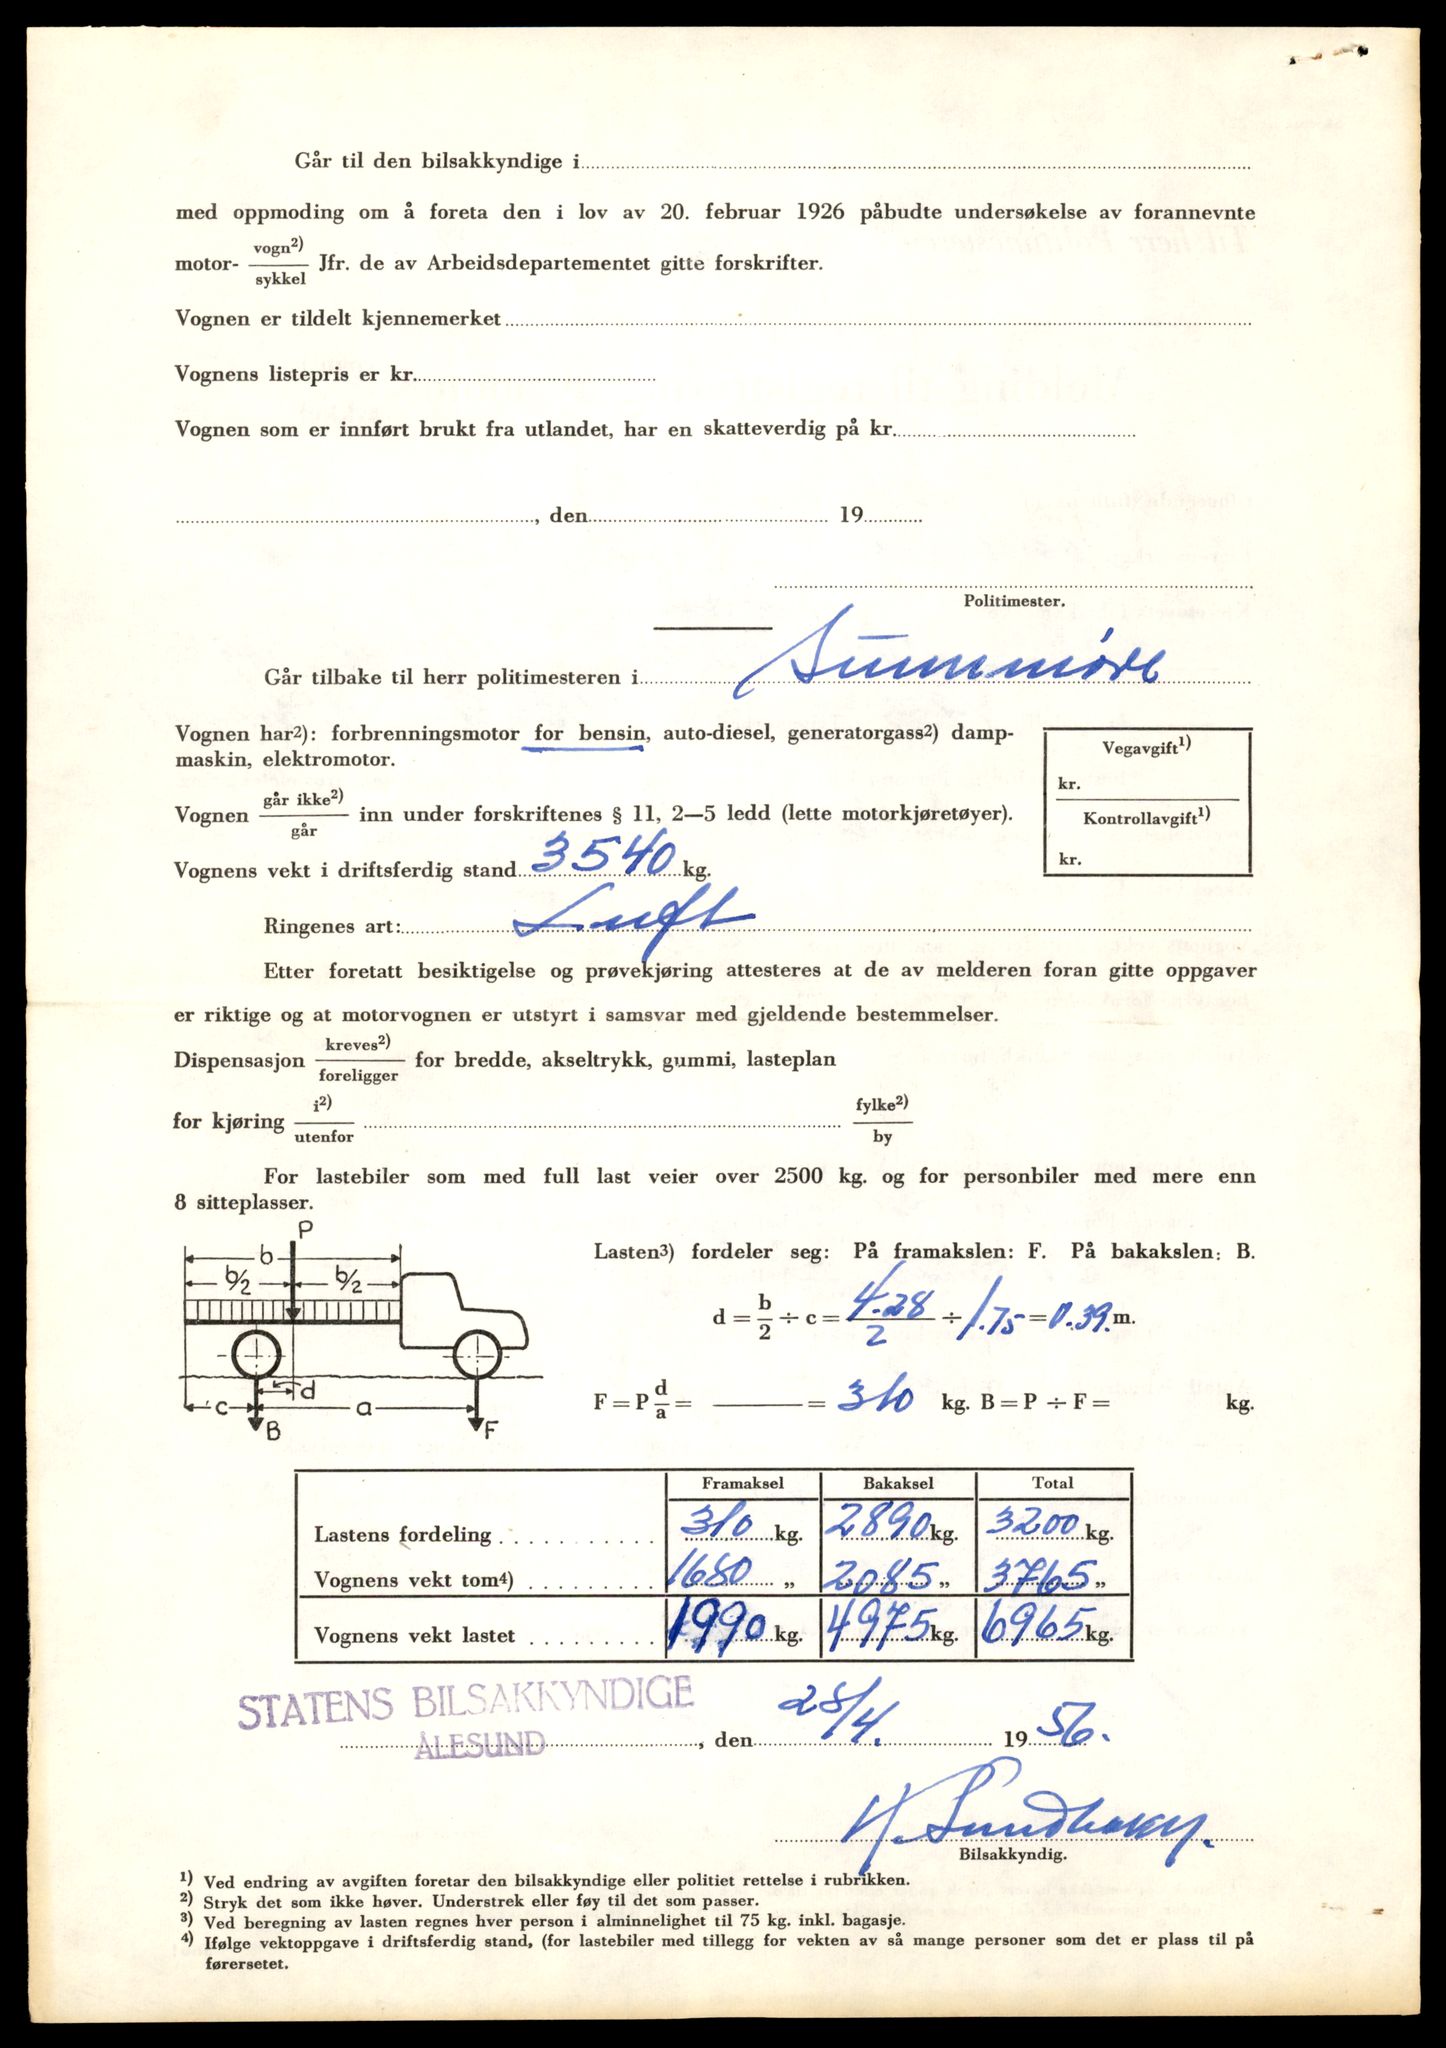 Går til den bilsakkyndige i
med oppmoding om å foreta den i lov av 20. februar 1926 påbudte undersøkelse av forannevnte
motor- vogn²)/sykkel Jfr. de av Arbeidsdepartementet gitte forskrifter.
Vognen er tildelt kjennemerket
Vognens listepris er kr.
Vognen som er innført brukt fra utlandet, har en skatteverdig på kr.
, den 19
Politimester.
Går tilbake til herr politimesteren i Sunnmøre
Vognen har²): forbrenningsmotor for bensin, auto-diesel, generatorgass²) damp-
maskin, elektromotor.
Vegavgift¹)
kr.
Kontrollavgift¹)
kr.
Vognen går ikke²)/går inn under forskriftenes § 11, 2—5 ledd (lette motorkjøretøyer).
Vognens vekt i driftsferdig stand 3540 kg.
Ringenes art: Luft
Etter foretatt besiktigelse og prøvekjøring attesteres at de av melderen foran gitte oppgaver
er riktige og at motorvognen er utstyrt i samsvar med gjeldende bestemmelser.
Dispensasjon kreves²)/foreligger for bredde, akseltrykk, gummi, lasteplan
for kjøring i²)/utenfor fylke²)/by
For lastebiler som med full last veier over 2500 kg. og for personbiler med mere enn
8 sitteplasser.
P
b
b/2 b/2
c d a
B F
Lasten³) fordeler seg: På framakslen: F. På bakakslen: B.
d = b/2 ÷ c = 4.28/2 ÷ 1.75 = 0.39 m.
F = P d/a = = 310 kg. B = P ÷ F = kg.
Framaksel Bakaksel Total
Lastens fordeling 310 kg. 2890 kg. 3200 kg.
Vognens vekt tom⁴) 1680 „ 2085 „ 3765 „
Vognens vekt lastet 1990 kg. 4975 kg. 6965 kg.
STATENS BILSAKKYNDIGE
ÅLESUND , den 28/4. 1956.
Bilsakkyndig.
¹) Ved endring av avgiften foretar den bilsakkyndige eller politiet rettelse i rubrikken.
²) Stryk det som ikke høver. Understrek eller føy til det som passer.
³) Ved beregning av lasten regnes hver person i alminnelighet til 75 kg. inkl. bagasje.
⁴) Ifølge vektoppgave i driftsferdig stand, (for lastebiler med tillegg for vekten av så mange personer som det er plass til på
førersetet.